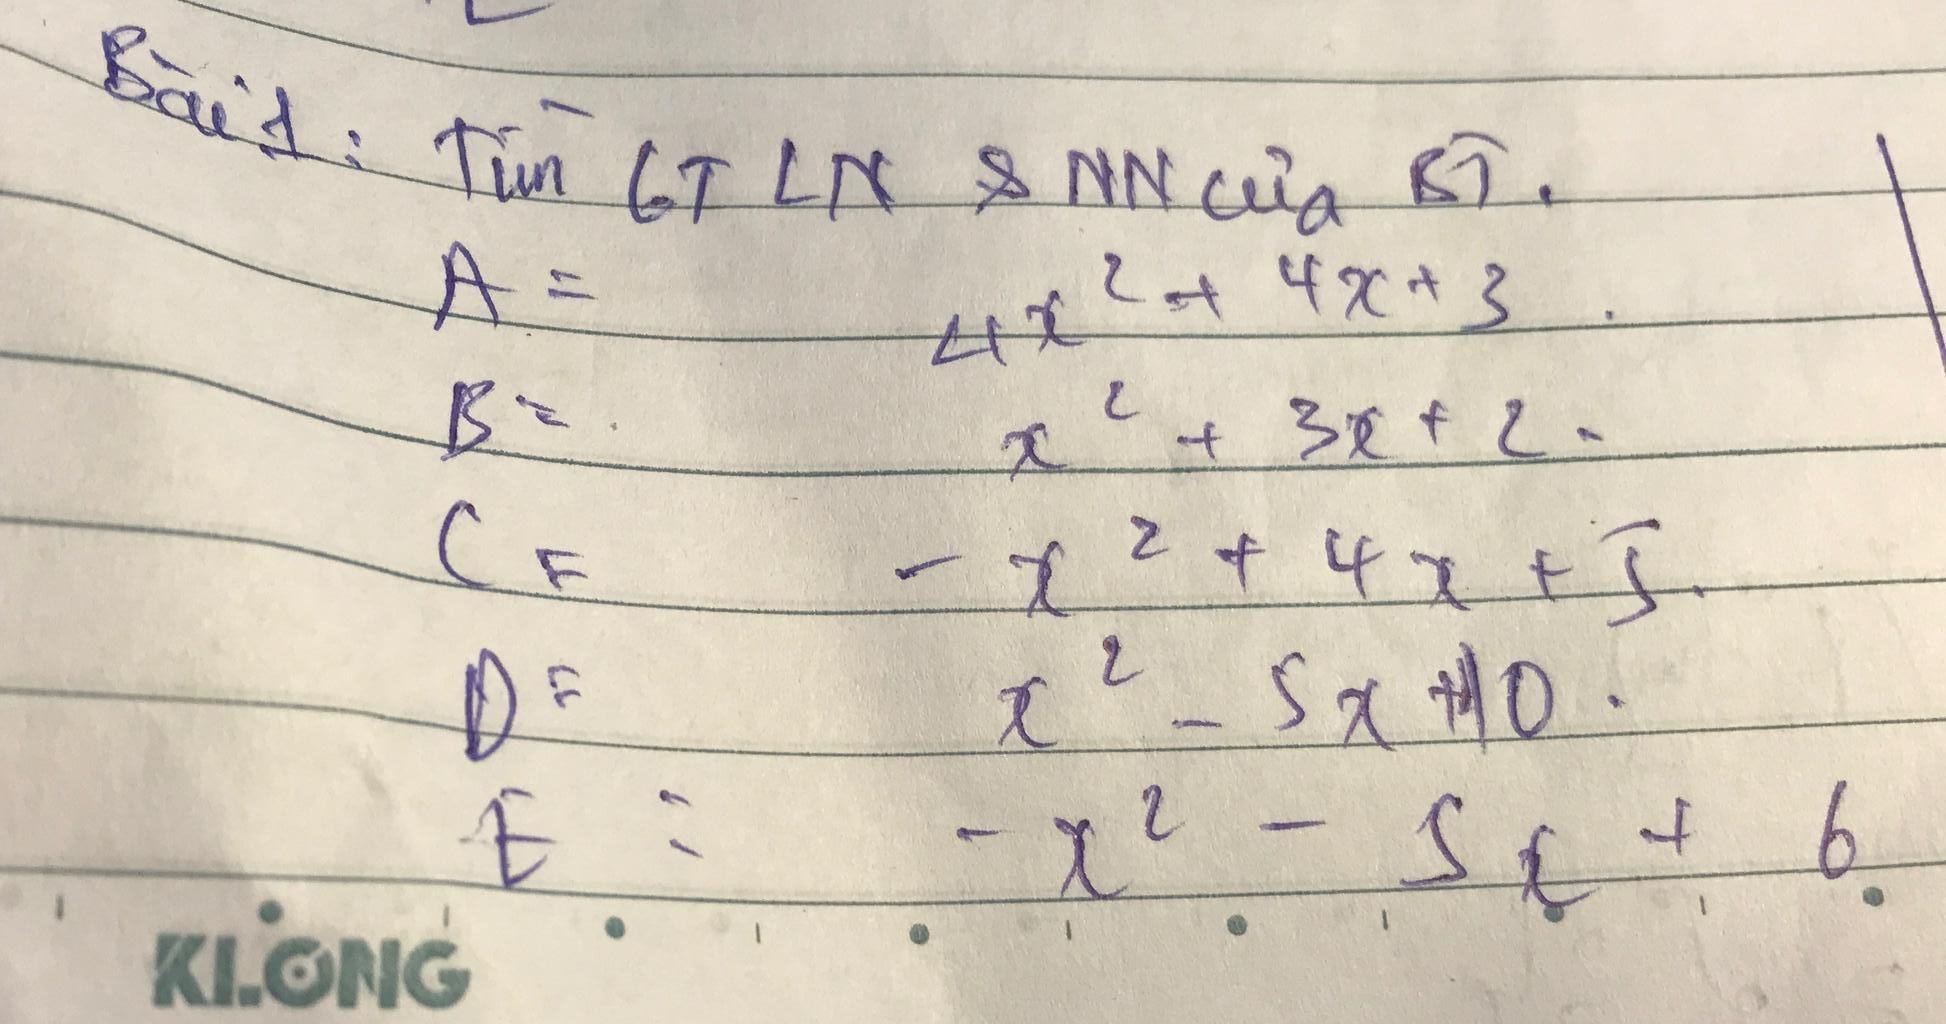 Bài 1: Tìm GTLN & NN của BT.
A = 4x² + 4x + 3.
B = x² + 3x + 2.
C = - x² + 4x + 5.
D = x² - 5x + 10.
E = - x² - 5x + 6
KLONG